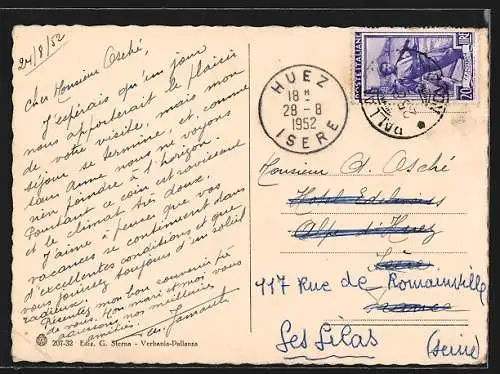 24/8/52
Cher Monsieur Osché,
J'espérais qu'un jour
nous apporterait le plaisir
de votre visite, mais mon
séjour se termine, et, comme
sœur Anne nous ne voyons
rien poindre à l'horizon.
Pourtant ce coin est ravissant
et le climat très doux.
J'aime à penser que vos
vacances se continuent dans
d'excellentes conditions et que
vous jouissez toujours d'un soleil
radieux.
Présentez mon bon souvenir
de vous. Mon mari et moi vous
adressons nos meilleures
amitiés.
207-32 Ediz. G. Sterna - Verbania-Pallanza
POSTE ITALIANE
20
HUEZ
18 H
28-8
1952
ISERE
Monsieur A. Osché
Hotel
Alpe d'Huez
Isère
France
117 Rue de Romainville
Les Lilas
(Seine)